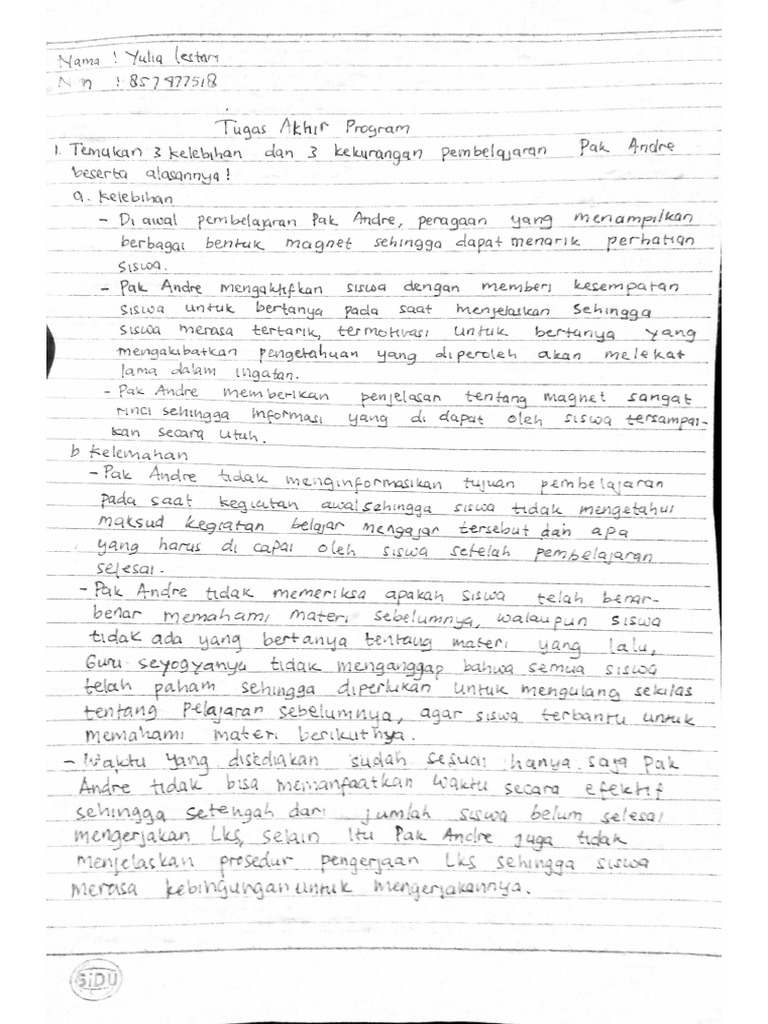 Nama : Yulia lestari
Nim : 857477518
Tugas Akhir Program
1. Temukan 3 kelebihan dan 3 kekurangan pembelajaran Pak Andre
beserta alasannya!
a. Kelebihan
- Di awal pembelajaran Pak Andre, peragaan yang menampilkan
berbagai bentuk magnet sehingga dapat menarik perhatian
siswa.
- Pak Andre mengaktifkan siswa dengan memberi kesempatan
siswa untuk bertanya pada saat menjelaskan sehingga
siswa merasa tertarik, termotivasi untuk bertanya yang
mengakibatkan pengetahuan yang diperoleh akan melekat
lama dalam ingatan.
- Pak Andre memberikan penjelasan tentang magnet sangat
rinci sehingga informasi yang di dapat oleh siswa tersampai-
kan secara utuh.
b Kelemahan
- Pak Andre tidak menginformasikan tujuan pembelajaran
pada saat kegiatan awal sehingga siswa tidak mengetahui
maksud kegiatan belajar mengajar tersebut dan apa
yang harus di capai oleh siswa setelah pembelajaran
selesai.
- Pak Andre tidak memeriksa apakah siswa telah benar-
benar memahami materi sebelumnya, walaupun siswa
tidak ada yang bertanya tentang materi yang lalu,
Guru seyogyanya tidak menganggap bahwa semua siswa
telah paham sehingga diperlukan untuk mengulang sekilas
tentang Pelajaran sebelumnya, agar siswa terbantu untuk
memahami materi berikutnya.
- Waktu yang disediakan sudah sesuai hanya saja Pak
Andre tidak bisa memanfaatkan waktu secara efektif
sehingga setengah dari jumlah siswa belum selesai
mengerjakan Lks, selain itu Pak Andre juga tidak
menjelaskan prosedur pengerjaan Lks sehingga siswa
merasa kebingungan untuk mengerjakannya.
SiDU